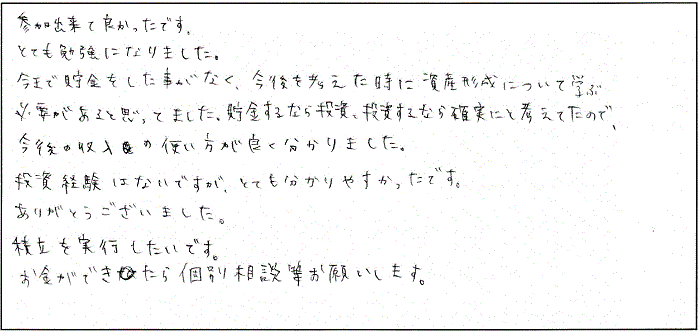 参加出来て良かったです。
とても勉強になりました。
今まで貯金をした事がなく、今後を考えた時に資産形成について学ぶ
必要があると思ってました。貯金するなら投資、投資するなら確実にと考えてたので、
今後の収入の使い方が良く分かりました。
投資経験はないですが、とても分かりやすかったです。
ありがとうございました。
積立を実行したいです。
お金ができたら個別相談等お願いします。